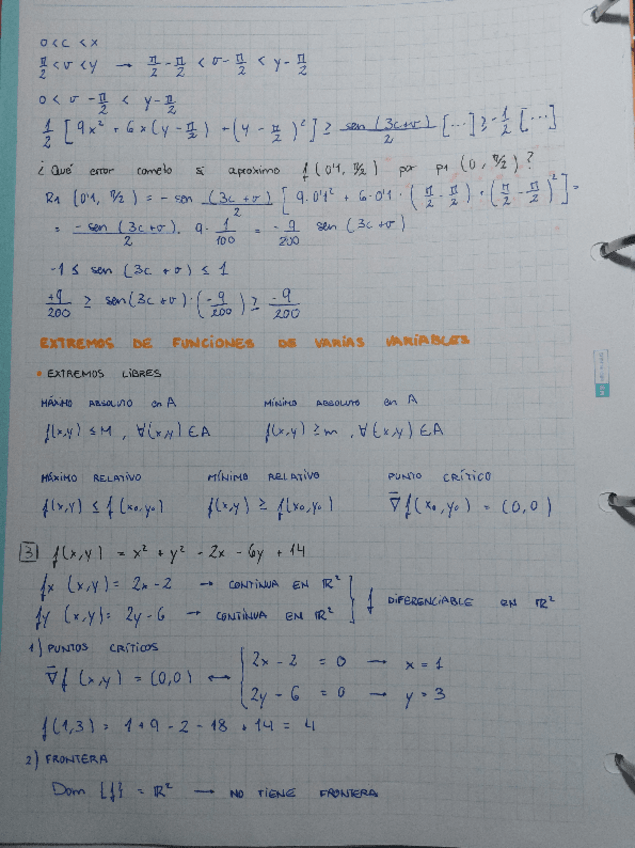 0 < c < x
π/2 < v < y → π/2 - π/2 < v - π/2 < y - π/2
0 < v - π/2 < y - π/2
1/2 [9x² + 6x(y - π/2) + (y - π/2)²] ≥ sen (3c+v)/2 [...] ≥ -1/2 [...]
¿Qué error cometo si aproximo f(0'1, π/2) por p1 (0, π/2)?
R1 (0'1, π/2) = - sen (3c+v)/2 [9·0'1² + 6·0'1·(π/2 - π/2) + (π/2 - π/2)²] =
= - sen (3c+v)/2 · 9 · 1/100 = - 9/200 sen (3c+v)
-1 ≤ sen (3c + v) ≤ 1
+9/200 ≥ sen(3c+v)·(-9/200) ≥ -9/200
EXTREMOS DE FUNCIONES DE VARIAS VARIABLES
• EXTREMOS LIBRES
MÁXIMO ABSOLUTO en A MÍNIMO ABSOLUTO en A
f(x,y) ≤ M, ∀(x,y) ∈ A f(x,y) ≥ m, ∀(x,y) ∈ A
MÁXIMO RELATIVO MÍNIMO RELATIVO PUNTO CRÍTICO
f(x,y) ≤ f(x₀,y₀) f(x,y) ≥ f(x₀,y₀) ∇f(x₀,y₀) = (0,0)
3 f(x,y) = x² + y² - 2x - 6y + 14
fx (x,y) = 2x - 2 → CONTINUA EN ℝ²
fy (x,y) = 2y - 6 → CONTINUA EN ℝ² } f DIFERENCIABLE EN ℝ²
1) PUNTOS CRÍTICOS
∇f (x,y) = (0,0) ↔ { 2x - 2 = 0 → x = 1
2y - 6 = 0 → y = 3
f(1,3) = 1 + 9 - 2 - 18 + 14 = 4
2) FRONTERA
Dom {f} = ℝ² → NO TIENE FRONTERA